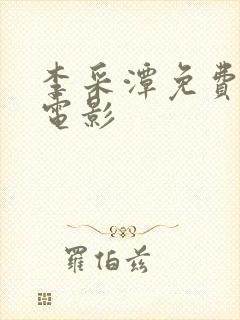 李采潭免費
電影
羅伯茲